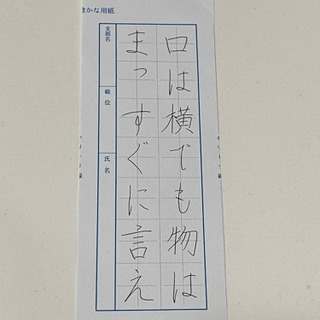 口は横でも物は
まっすぐに言え
支部名
級位
氏名